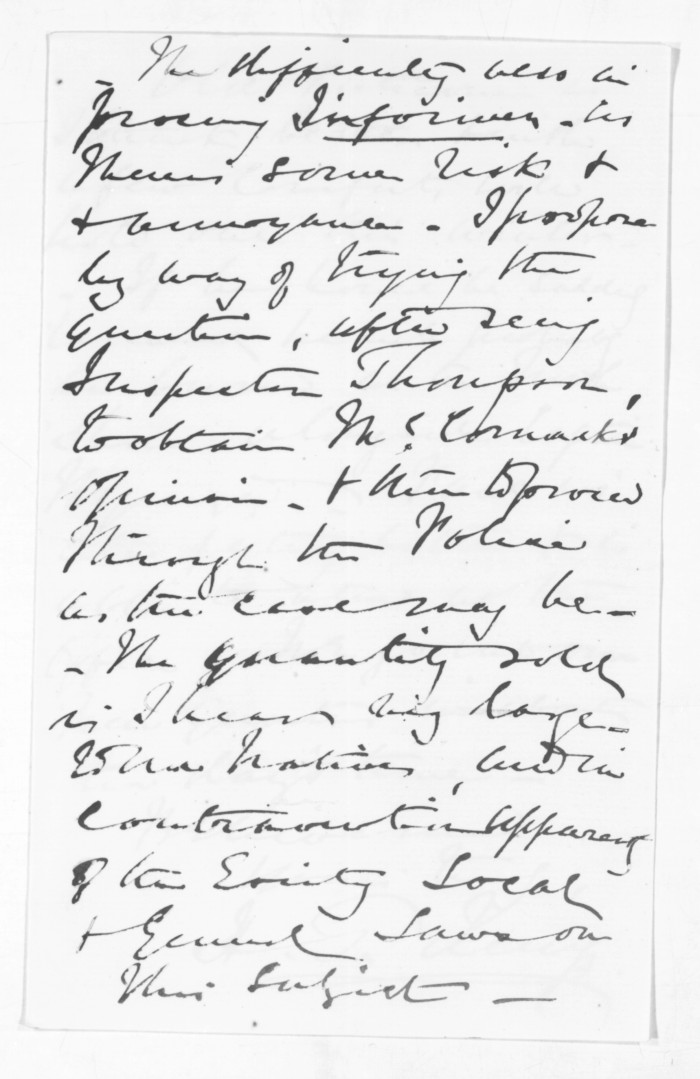 - The difficulty also is
procuring Informers - as
there is some risk &
& annoyance - I propose
by way of trying the
question, after seeing
Inspector Thompson,
to obtain Mc Cormack's
opinion - & then to proceed
through the Police
as the case may be -
- The quantity sold
is I hear very large -
to the Natives, and in
contravention apparently
of the Existing Local
& General Laws on
this subject -